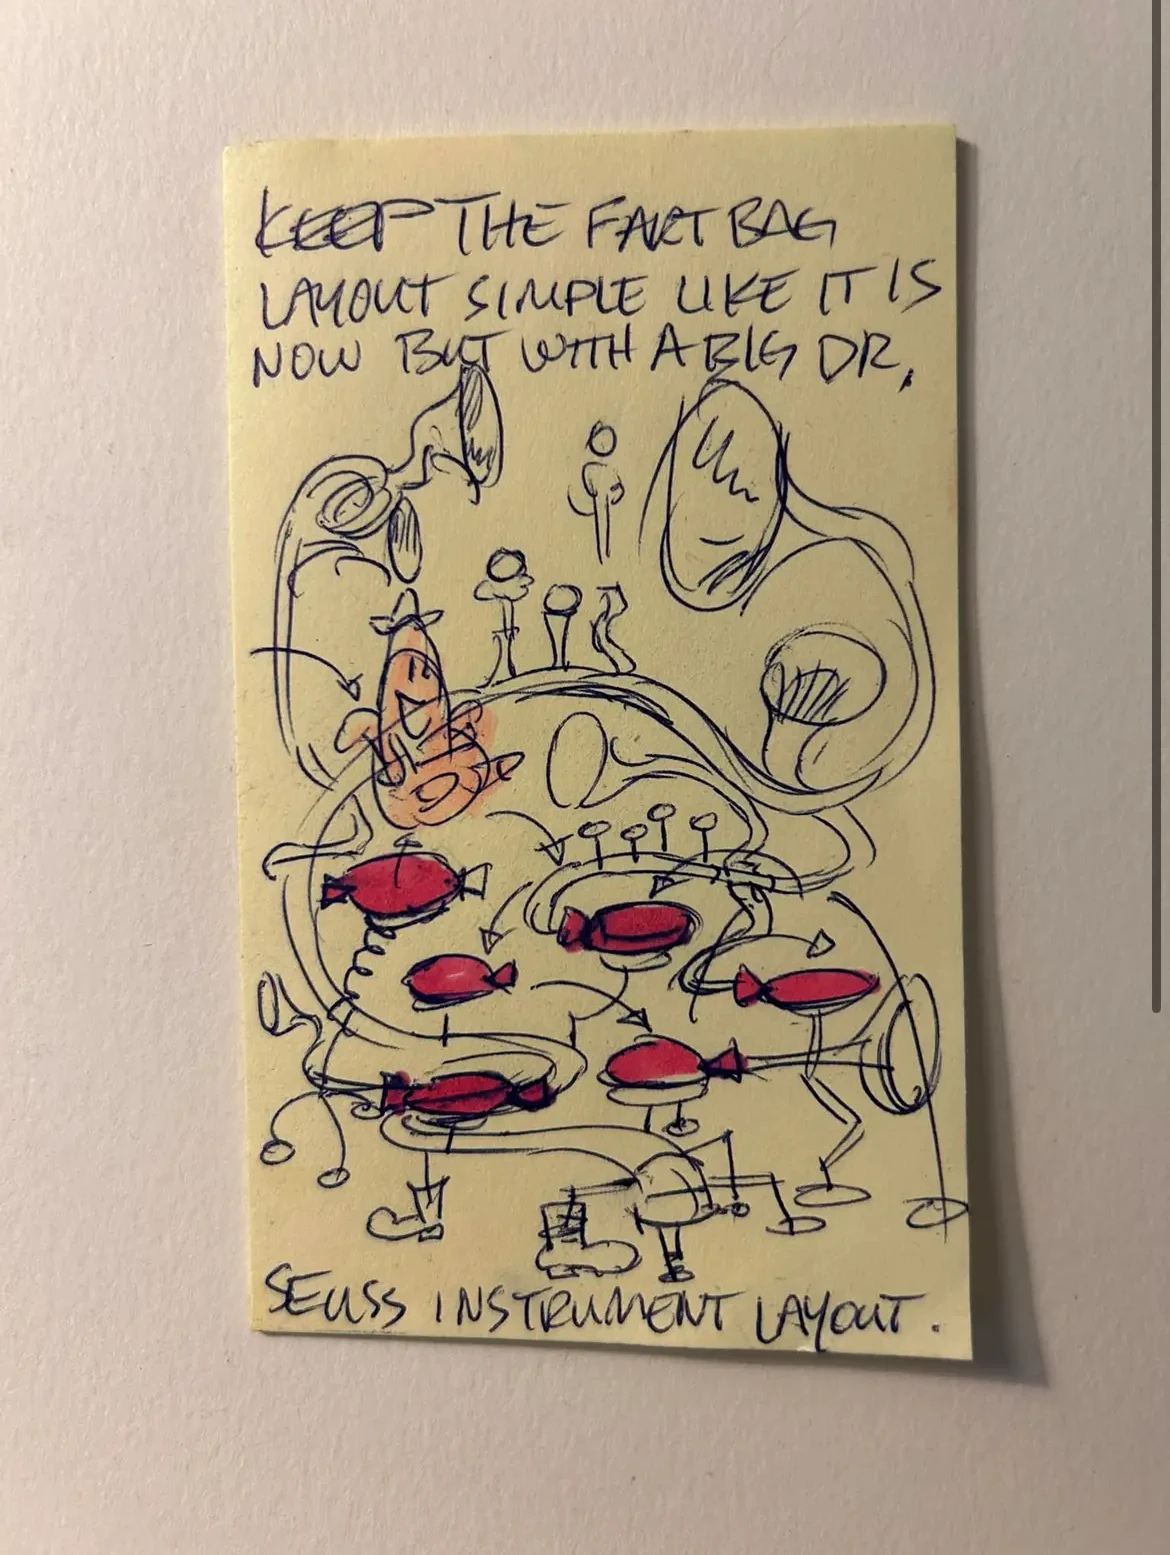 KEEP THE FART BAG
LAYOUT SIMPLE LIKE IT IS
NOW BUT WITH A BIG DR,
SEUSS INSTRUMENT LAYOUT.